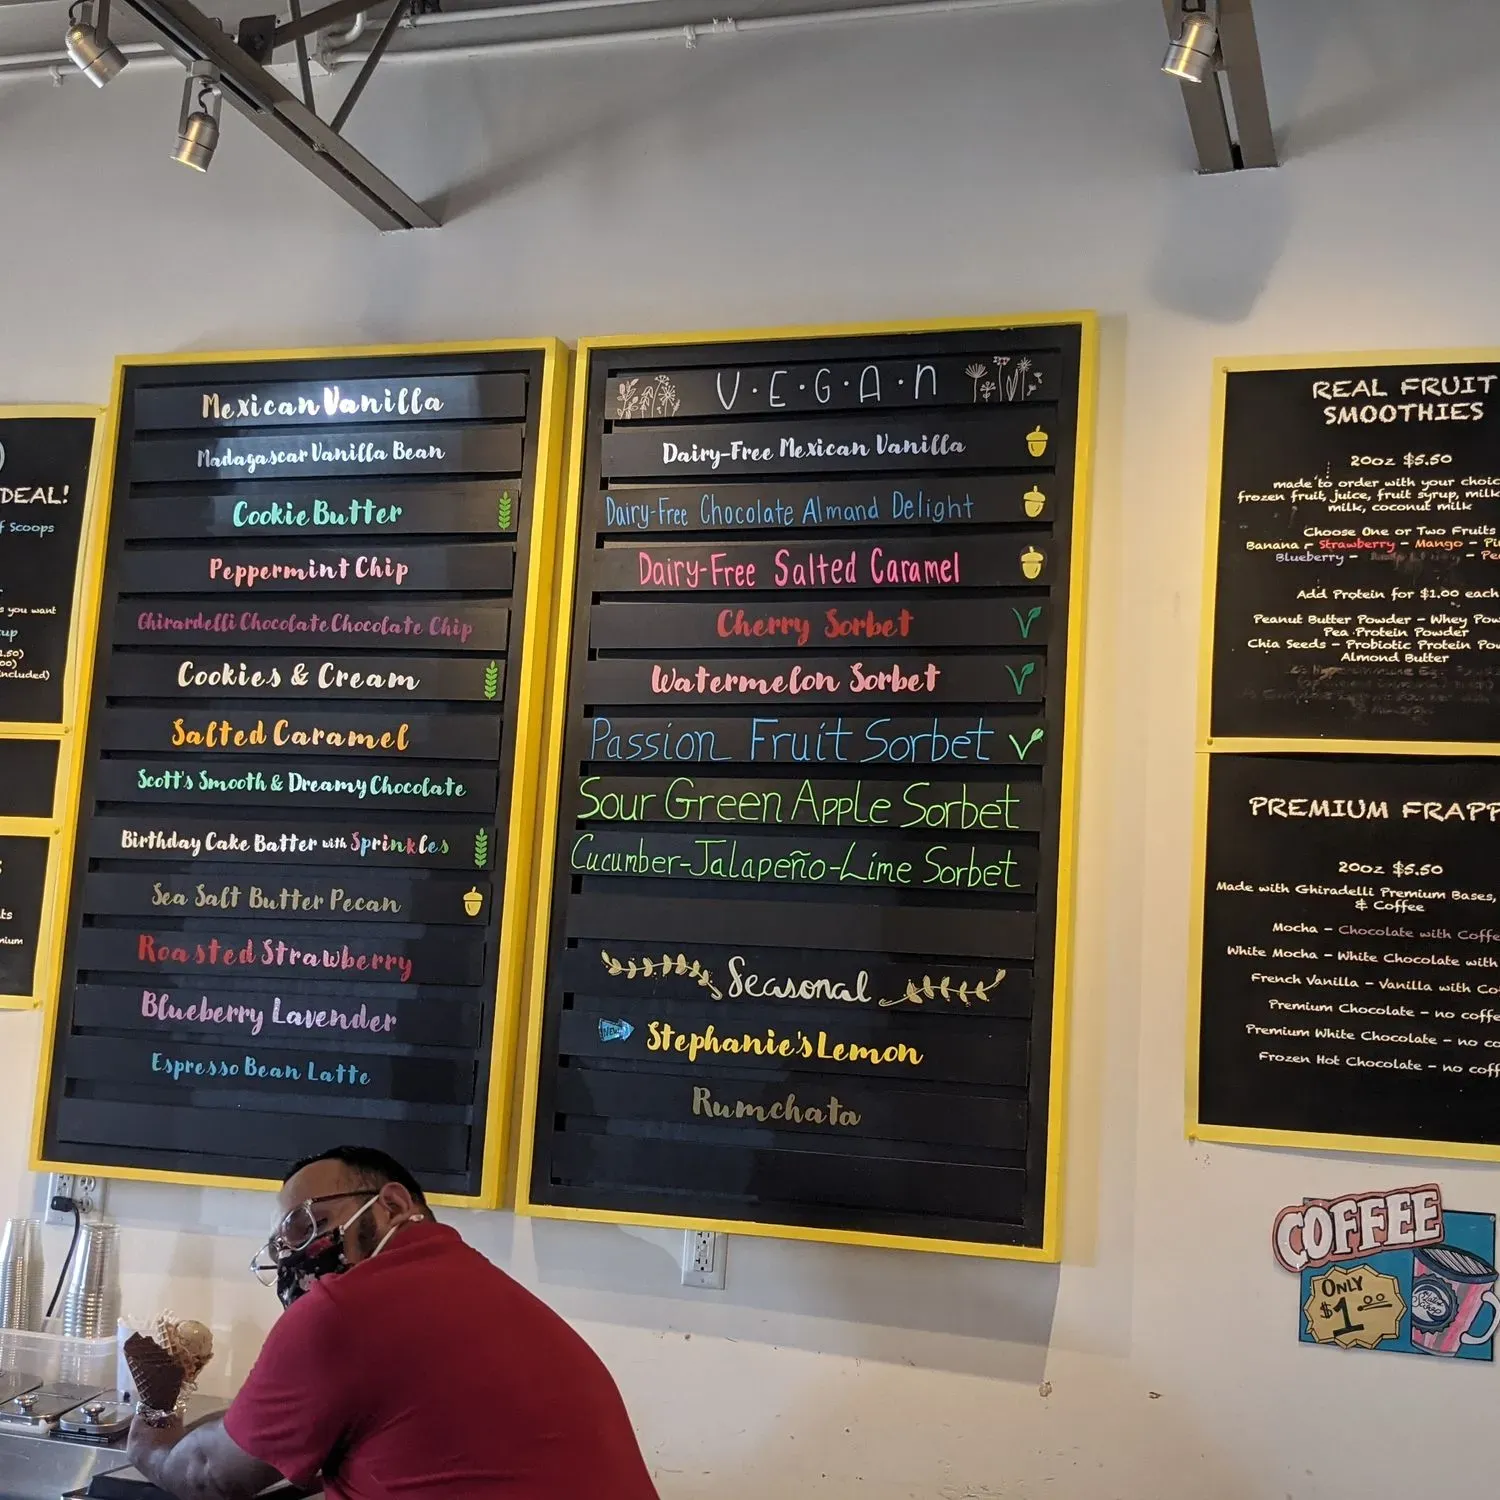 DEAL!
f Scoops
s you want
cup
included)
Mexican Vanilla
Madagascar Vanilla Bean
Cookie Butter
Peppermint Chip
Ghirardelli Chocolate Chocolate Chip
Cookies & Cream
Salted Caramel
Scott's Smooth & Dreamy Chocolate
Birthday Cake Batter with Sprinkles
Sea Salt Butter Pecan
Roasted Strawberry
Blueberry Lavender
Espresso Bean Latte
V·E·G·A·N
Dairy-Free Mexican Vanilla
Dairy-Free Chocolate Almand Delight
Dairy-Free Salted Caramel
Cherry Sorbet
Watermelon Sorbet
Passion Fruit Sorbet
Sour Green Apple Sorbet
Cucumber-Jalapeño-Lime Sorbet
Seasonal
NEW! Stephanie's Lemon
Rumchata
REAL FRUIT
SMOOTHIES
20oz $5.50
made to order with your choic
frozen fruit, juice, fruit syrup, milk
milk, coconut milk
Choose One or Two Fruits
Banana - Strawberry - Mango - Pi
Blueberry - - Pe
Add Protein for $1.00 each
Peanut Butter Powder - Whey Pow
Pea Protein Powder
Chia Seeds - Probiotic Protein Po
Almond Butter
PREMIUM FRAPP
20oz $5.50
Made with Ghiradelli Premium Bases,
& Coffee
Mocha - Chocolate with Coffe
White Mocha - White Chocolate with
French Vanilla - Vanilla with Co
Premium Chocolate - no coffe
Premium White Chocolate - no co
Frozen Hot Chocolate - no coff
COFFEE
ONLY
$1.00